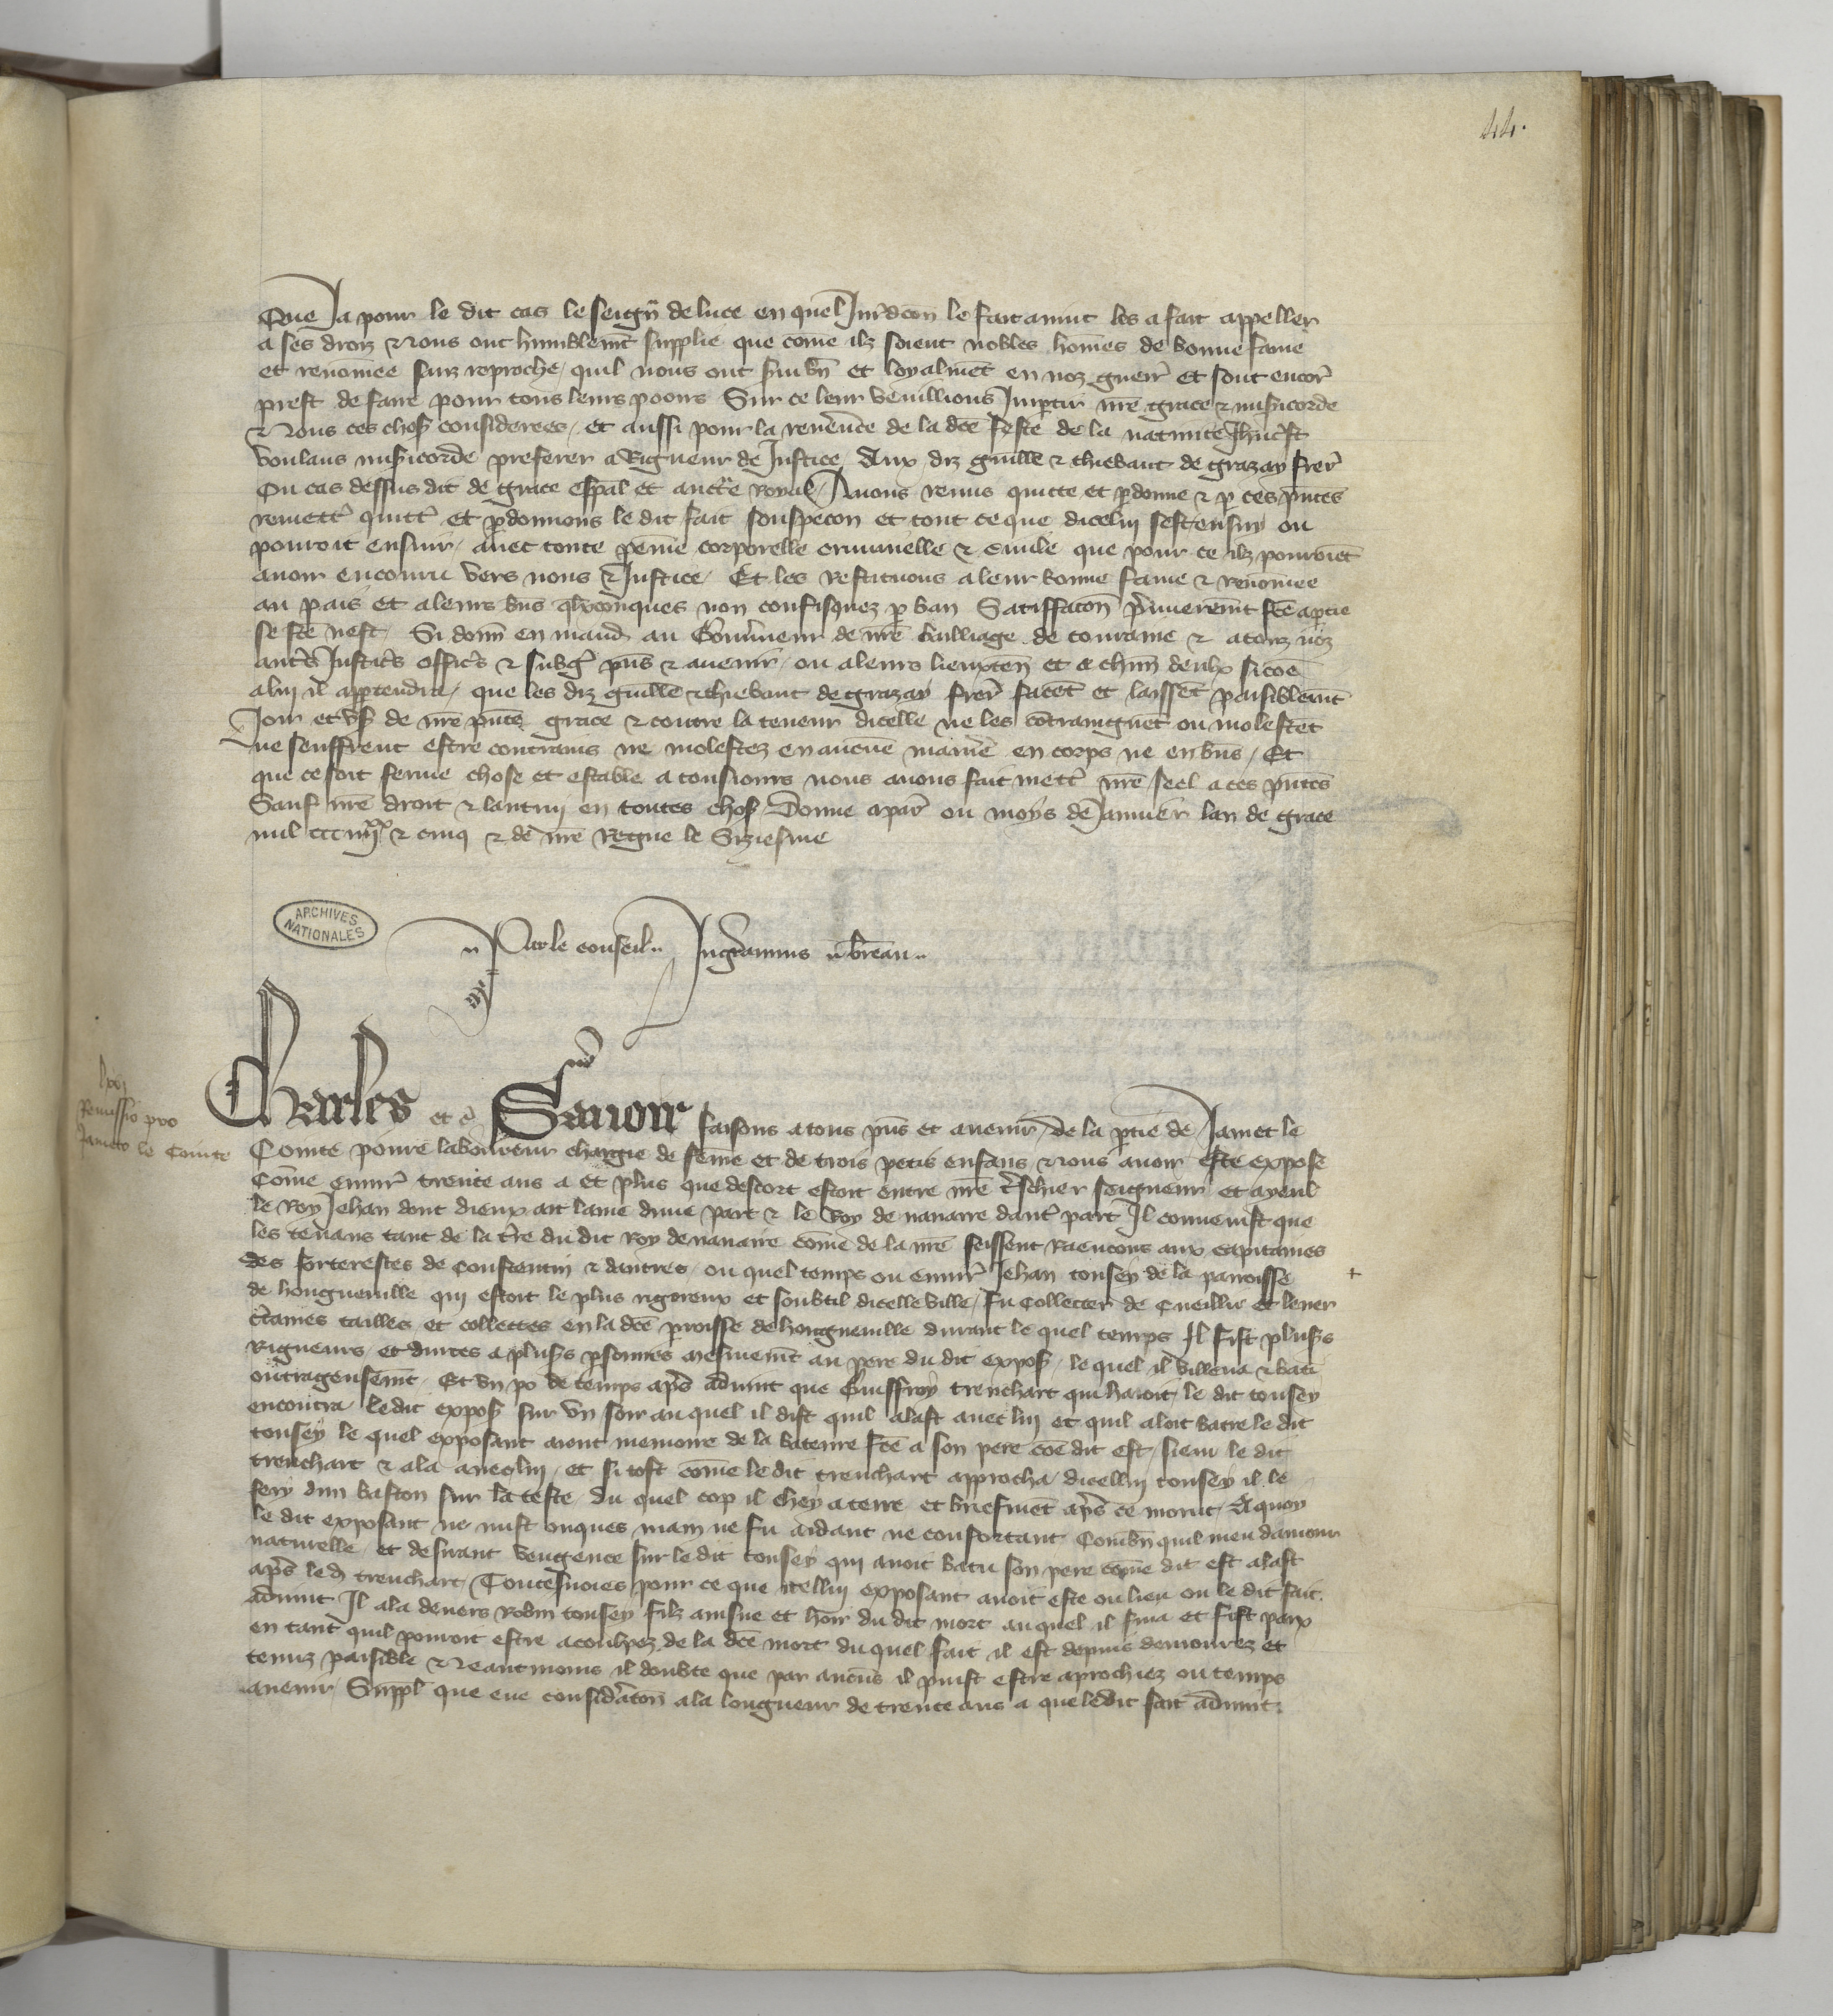 44.
Que Ja pour le dit cas le seigñ de luce en quel Jurᵈcon le fait auint les a fait appeller
a ses droiz & nous ont humblemt̃ supplie que com̃e ilz soient nobles hom̃es de bonne fame
et renom̃ee sanz reproche / quil nous ont serui bñ et loyalmẽt en noz guerr̃ et sont encor̃
prest de faire pour touz leurs poours Sur ce leur veuillions Impartir nr̃e grace & mis̃icorde
& Nous ces chos̃ considerees / et aussi pour la reuer̃ence de la dc̃e feste de la natiuite Jhũcr̃st
voulans mis̃icorde preferer a Rigueur de Justice / Aux diz guille & thiebaut de grazay frer̃
Ou cas dessus dit de grace esp̃al et auctt̃e Royal / Auons remis quitte et p̱donne & p̱ ces p̃ntes
remett̃ quitt̃ et p̱donnons le dit fait souspecon et tout ce que dicelui sest ensuy ou
pouroit ensuir / auec toute peine corporelle criminelle & ciuile que pour ce ilz pouroiẽt
auoir encouru vers nous & Justice / Et les restituons a leur bonne fame & renom̃ee
au pais et a leurs bñs q̃lxconques non confisquez p̱ ban Satiffacoñ p̃mieremt̃ fc̃e a p̱tie
se fc̃e nest / Si donñ en mand̃ au Gouũneur de nr̃e bailliage de touraine & a touz noz
autr̃s Justic̃s offic̃s & subg̃ p̃ns & auenir / ou a leurs lieuxteñ et a chũn deulx si cõe
a lui il app̱tendra / que les diz guille & thiebaut de grazay frer̃ facẽt et laissẽt paisiblemt̃
Joir et vs̃ de nr̃e p̃nte grace & contre la teneur dicelle ne les cõtraingnẽt ou molestẽt
ne seuffrent estre contrains ne molestez en aucune manier̃e en corps ne en bñs / Et
que ce soit ferme chose et estable a tousiours nous auons fait mett̃ nr̃e seel a ces p̃ntes
Sauf nr̃e droit & lautrui en toutes chos̃ Donne a par̃ ou moys de Januier lan de grace
mil ccc iiiiˣˣ & cinq & de nr̃e Regne le Siziesme
ARCHIVES
NATIONALES
Par le conseil .. Ingr̃amus .. br̃eau ..
lxxj
Remissio pro
Jameto le Comte
Charles et c̃ Sauoir faisons a tous p̃ns et auenir / de la p̱tie de Jamet le
Comte poure laboureur chargie de fem̃e et de trois petis enfans & nous auoir este expose
Com̃e enuir̃ trente ans a et plus que descort estoit entre nr̃e tr̃schier seigneur et ayeul
le Roy Jehan dont dieux ait lame dune part & le Roy de nauarre dautr̃ part Il conuenist que
les tenans tant de la tr̃e du dit Roy de nauarre com̃e de la nr̃e feissent Raencons aux capitaines
des forteresces de Constentin & dautres / ou quel temps ou enuir̃ Jehan tousey de la parroisse
de hougueuille qui estoit le plus rigoreux et soubtil dicelle ville / fu collecter de Cueillir et leuer
c̃taines tailles et collectes en la dc̃e p̱roisse de hougueuille durant le quel temps Il fist plus̃s
Rigueurs et durtes a plus̃s p̱sonnes mesmemt̃ au pere du dit expos̃ / le quel il villena & bati
oultrageusemt̃ / Et vn po de temps ap̃s aduint que Guiffroy trenchart qui haioit le dit tousey
encontra le dit expos̃ sur vn soir au quel il dist quil alast auec lui et quil aloit batre le dit
tousey le quel exposant aient memoire de la bateure fc̃e a son pere cõe dit est / sieui le dit
trenchart & ala auec lui / et si tost com̃e le dit trenchart approcha / dicellui tousey il le
fery dun baston sur la teste / du quel cop il chey a terre et briefmẽt ap̃s ce morut / A quoy
le dit exposant ne mist onques main ne fu aidant ne confortant Combñ quil meu damour
naturelle et desirant vengence sur le dit tousey qui auoit batu son pere com̃e dit est alast
ap̃s led̃ trenchart / Toutesuoies pour ce que icellui exposant auoit este ou lieu ou le dit fait
aduint Il ala deuers Robin tousey filz ainsne et hoir du dit mort au quel il fina et fist paix
en tant quil pouroit estre acoulpez de la dc̃e mort du quel fait il est depuis demourez et
tenuz paisible & Neantmoins il doubte que par aucũs il puist estre aprochiez ou temps
auenir / Suppl̃ que eue consid̃atoñ a la longueur de trente ans a que le dit fait aduint